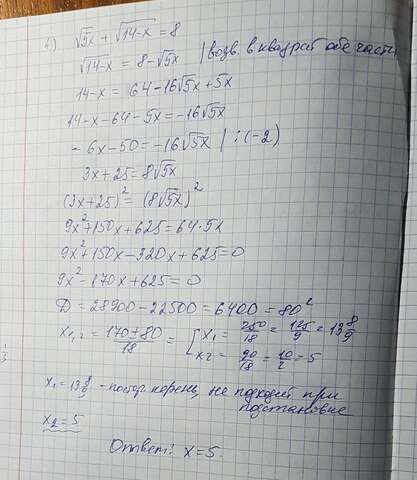 4) √5x + √14-x = 8
√14-x = 8-√5x | возв. в квадрат обе части
14-x = 64-16√5x+5x
14-x-64-5x=-16√5x
-6x-50=-16√5x | :(-2)
3x+25=8√5x
(3x+25)² = (8√5x)²
9x²+150x+625=64·5x
9x²+150x-320x+625=0
9x²-170x+625=0
D=28900-22500=6400=80²
x₁,₂ = 170±80/18 = { x₁ = 250/18 = 125/9 = 13 8/9
x₂ = 90/18 = 10/2 = 5
x₁=13 8/9 - побор корень, не подходит при
подстановке
x₂=5
Ответ: x=5